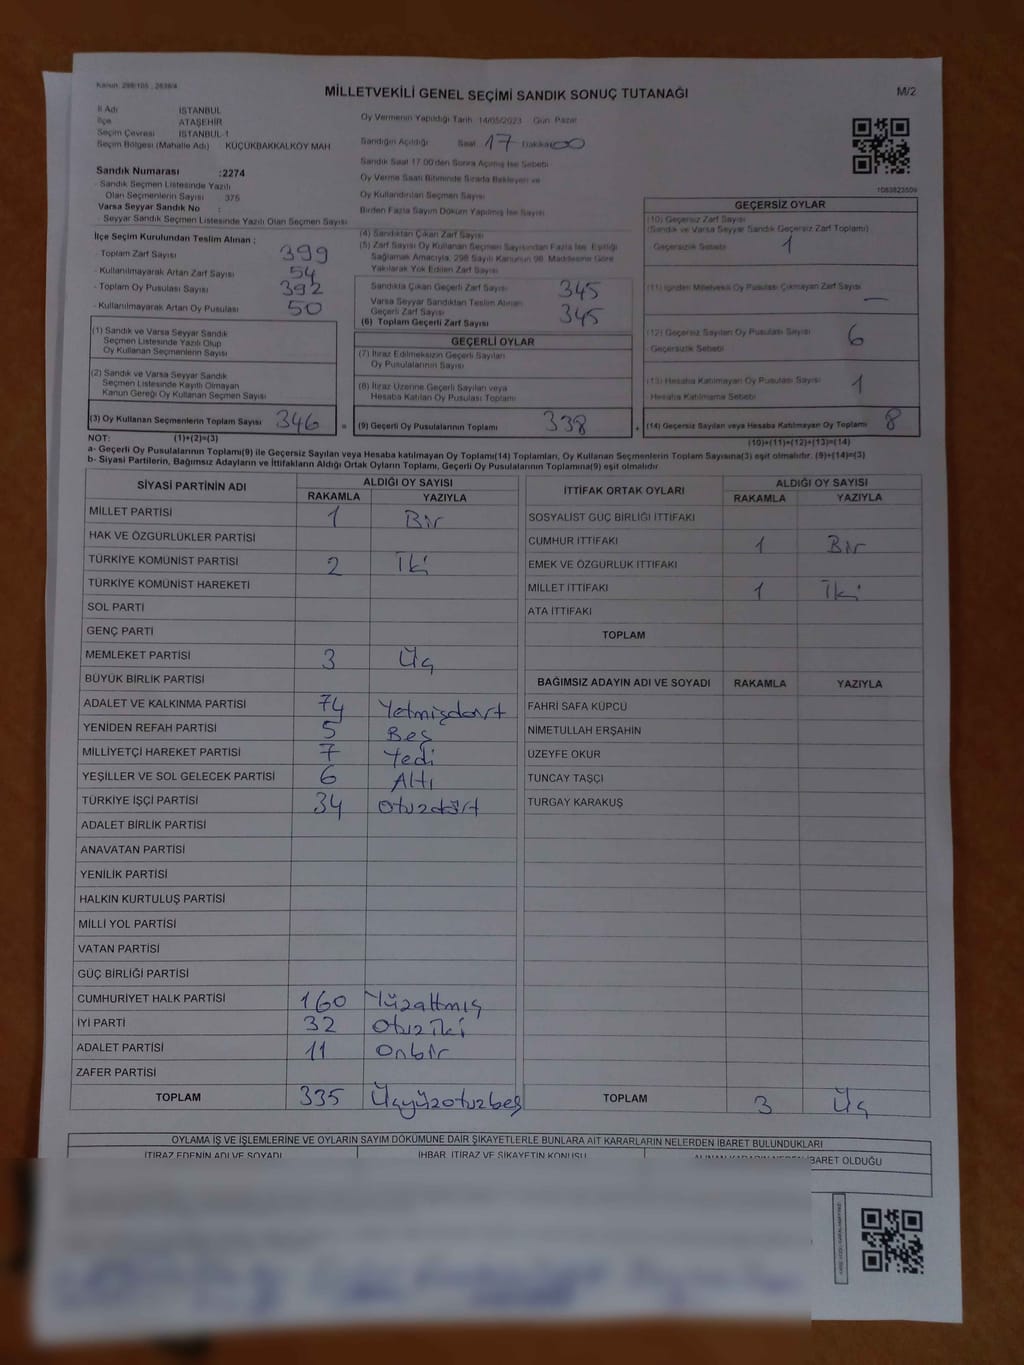 Kanun: 298/105 , 2839/4
MİLLETVEKİLİ GENEL SEÇİMİ SANDIK SONUÇ TUTANAĞI
M/2
İl Adı İSTANBUL
İlçe ATAŞEHİR
Seçim Çevresi İSTANBUL-1
Seçim Bölgesi (Mahalle Adı) KÜÇÜKBAKKALKÖY MAH
Sandık Numarası :2274
- Sandık Seçmen Listesinde Yazılı
Olan Seçmenlerin Sayısı 375
Varsa Seyyar Sandık No :
- Seyyar Sandık Seçmen Listesinde Yazılı Olan Seçmen Sayısı
İlçe Seçim Kurulundan Teslim Alınan ;
- Toplam Zarf Sayısı 399
- Kullanılmayarak Artan Zarf Sayısı 54
- Toplam Oy Pusulası Sayısı 392
- Kullanılmayarak Artan Oy Pusulası 50
(1) Sandık ve Varsa Seyyar Sandık
Seçmen Listesinde Yazılı Olup
Oy Kullanan Seçmenlerin Sayısı
(2) Sandık ve Varsa Seyyar Sandık
Seçmen Listesinde Kayıtlı Olmayan
Kanun Gereği Oy Kullanan Seçmen Sayısı
(3) Oy Kullanan Seçmenlerin Toplam Sayısı 346 =
Oy Vermenin Yapıldığı Tarih 14/05/2023 Gün Pazar
Sandığın Açıldığı Saat 17 Dakika 00
Sandık Saat 17.00'den Sonra Açılmış İse Sebebi
Oy Verme Saati Bitiminde Sırada Bekleyen ve
Oy Kullandırılan Seçmen Sayısı
Birden Fazla Sayım Döküm Yapılmış İse Sayısı
(4) Sandıktan Çıkan Zarf Sayısı
(5) Zarf Sayısı Oy Kullanan Seçmen Sayısından Fazla İse, Eşitliği
Sağlamak Amacıyla, 298 Sayılı Kanunun 98. Maddesine Göre
Yakılarak Yok Edilen Zarf Sayısı
Sandıkta Çıkan Geçerli Zarf Sayısı 345
Varsa Seyyar Sandıktan Teslim Alınan
Geçerli Zarf Sayısı 345
(6) Toplam Geçerli Zarf Sayısı
GEÇERLİ OYLAR
(7) İtiraz Edilmeksizin Geçerli Sayılan
Oy Pusulalarının Sayısı
(8) İtiraz Üzerine Geçerli Sayılan veya
Hesaba Katılan Oy Pusulası Toplamı
(9) Geçerli Oy Pusulalarının Toplamı 338 +
1083823509
GEÇERSİZ OYLAR
(10) Geçersiz Zarf Sayısı
(Sandık ve Varsa Seyyar Sandık Geçersiz Zarf Toplamı)
Geçersizlik Sebebi 1
(11) İçinden Milletvekili Oy Pusulası Çıkmayan Zarf Sayısı —
(12) Geçersiz Sayılan Oy Pusulası Sayısı 6
Geçersizlik Sebebi
(13) Hesaba Katılmayan Oy Pusulası Sayısı 1
Hesaba Katılmama Sebebi
(14) Geçersiz Sayılan veya Hesaba Katılmayan Oy Toplamı 8
NOT: (1)+(2)=(3) (10)+(11)+(12)+(13)=(14)
a- Geçerli Oy Pusulalarının Toplamı(9) ile Geçersiz Sayılan veya Hesaba katılmayan Oy Toplamı(14) Toplamları, Oy Kullanan Seçmenlerin Toplam Sayısına(3) eşit olmalıdır. (9)+(14)=(3)
b- Siyasi Partilerin, Bağımsız Adayların ve İttifakların Aldığı Ortak Oyların Toplamı, Geçerli Oy Pusulalarının Toplamına(9) eşit olmalıdır
SİYASİ PARTİNİN ADI ALDIĞI OY SAYISI
RAKAMLA YAZIYLA
MİLLET PARTİSİ 1 Bir
HAK VE ÖZGÜRLÜKLER PARTİSİ
TÜRKİYE KOMÜNİST PARTİSİ 2 İki
TÜRKİYE KOMÜNİST HAREKETİ
SOL PARTİ
GENÇ PARTİ
MEMLEKET PARTİSİ 3 Üç
BÜYÜK BİRLİK PARTİSİ
ADALET VE KALKINMA PARTİSİ 74 Yetmişdört
YENİDEN REFAH PARTİSİ 5 Beş
MİLLİYETÇİ HAREKET PARTİSİ 7 Yedi
YEŞİLLER VE SOL GELECEK PARTİSİ 6 Altı
TÜRKİYE İŞÇİ PARTİSİ 34 Otuzdört
ADALET BİRLİK PARTİSİ
ANAVATAN PARTİSİ
YENİLİK PARTİSİ
HALKIN KURTULUŞ PARTİSİ
MİLLİ YOL PARTİSİ
VATAN PARTİSİ
GÜÇ BİRLİĞİ PARTİSİ
CUMHURİYET HALK PARTİSİ 160 Yüzaltmış
İYİ PARTİ 32 Otuziki
ADALET PARTİSİ 11 Onbir
ZAFER PARTİSİ
TOPLAM 335 Üçyüzotuzbeş
İTTİFAK ORTAK OYLARI ALDIĞI OY SAYISI
RAKAMLA YAZIYLA
SOSYALİST GÜÇ BİRLİĞİ İTTİFAKI
CUMHUR İTTİFAKI 1 Bir
EMEK VE ÖZGÜRLÜK İTTİFAKI
MİLLET İTTİFAKI 1 İki
ATA İTTİFAKI
TOPLAM
BAĞIMSIZ ADAYIN ADI VE SOYADI RAKAMLA YAZIYLA
FAHRİ SAFA KÜPCÜ
NİMETULLAH ERŞAHİN
ÜZEYFE OKUR
TUNCAY TAŞÇI
TURGAY KARAKUŞ
TOPLAM 3 Üç
OYLAMA İŞ VE İŞLEMLERİNE VE OYLARIN SAYIM DÖKÜMÜNE DAİR ŞİKAYETLERLE BUNLARA AİT KARARLARIN NELERDEN İBARET BULUNDUKLARI
İTİRAZ EDENİN ADI VE SOYADI İHBAR, İTİRAZ VE ŞİKAYETİN KONUSU ALINAN KARARIN NEDEN İBARET OLDUĞU